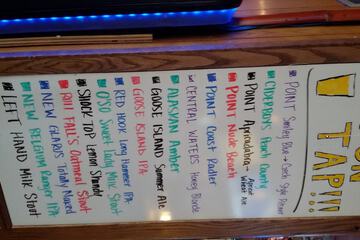 ON
TAP!!!
POINT Smiley Blue → Czech Style Pilsner
CIDERBOYS Peach County
POINT Apricadabra → Apricot Wheat Ale
POINT Nude Beach
POINT Coast Radler
CENTRAL WATERS Honey Blonde
ALASKAN Amber
GOOSE ISLAND Summer Ale
GOOSE ISLAND IPA
RED HOOK Long Hammer IPA
O'SO Sweet Lady Milk Stout
SHOCK TOP Lemon Shandy
RUSH FALL'S Oatmeal Stout
NEW GLARUS Totally Naked
NEW BELGIUM Ranger IPA
LEFT HAND Milk Stout